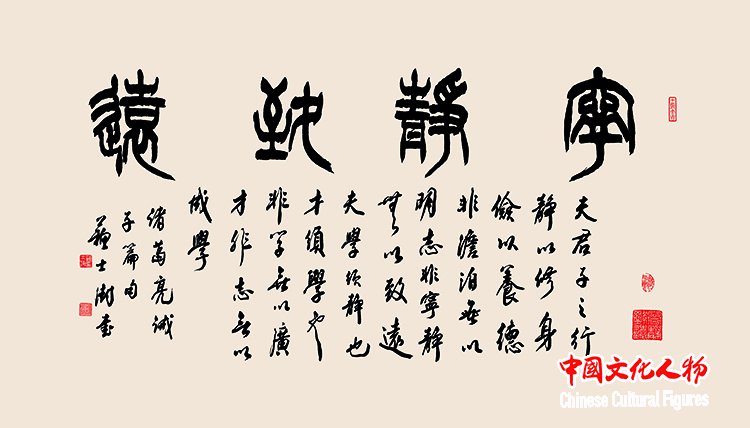 寧靜致遠
夫君子之行
靜以修身
儉以養德
非澹泊無以
明志非寧靜
無以致遠
夫學須靜也
才須學也
非學無以廣
才非志無以
成學
諸葛亮誡
子篇句
蘇士澍書
中國文化人物
Chinese Cultural Figures